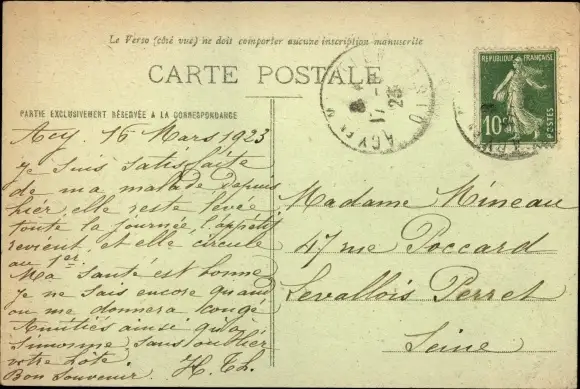 Le Verso (côté vue) ne doit comporter aucune inscription manuscrite
CARTE POSTALE
PARTIE EXCLUSIVEMENT RÉSERVÉE A LA CORRESPONDANCE
Acy, 16 Mars 1923
Je suis satisfaite
de ma malade depuis
hier elle reste levée
toute la journée, l'appétit
revient et elle circule
au 1er.
Ma santé est bonne
je ne sais encore quand
on me donnera congé
Amitiés ainsi qu'à
Simonne, sans oublier
votre hôte.
Bon Souvenir. H. Th.
Madame Mineau
47 rue Poccard
Levallois Perret
Seine
ACY EN M
23
OISE
REPUBLIQUE FRANÇAISE
10
POSTES